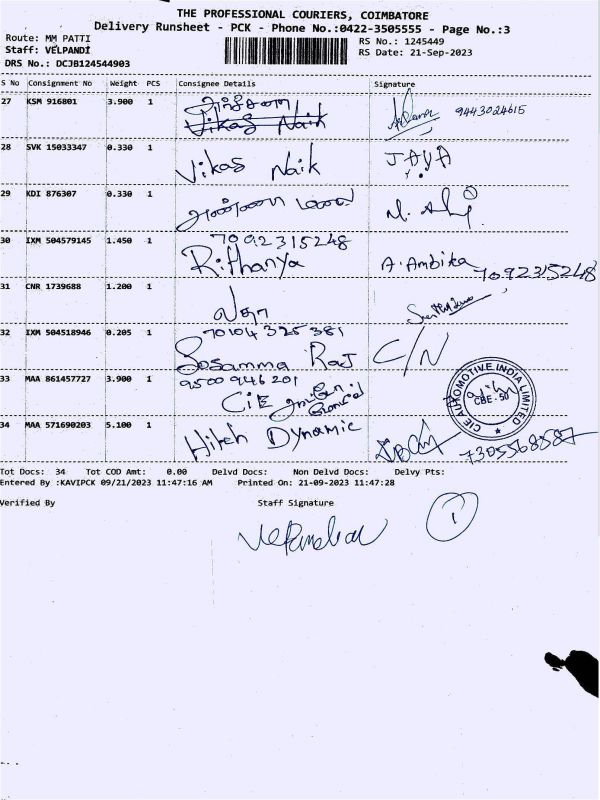 THE PROFESSIONAL COURIERS, COIMBATORE
Delivery Runsheet - PCK - Phone No.:0422-3505555 - Page No.:3
Route: MM PATTI
RS No.: 1245449
Staff: VELPANDI
RS Date: 21-Sep-2023
DRS No.: DCJB124544903
S No Consignment No Weight PCS Consignee Details Signature
27 KSM 916801 3.900 1 9443024615
Vikas Naik
28 SVK 15033347 0.330 1 Vikas Naik JAYA
29 KDI 876307 0.330 1
30 IXM 504579145 1.450 1 7092315248
Rithanya A. Ambika 7092315248
31 CNR 1739688 1.200 1 லதா
32 IXM 504518946 0.205 1 70104 325 381
Sosamma Raj C/N
33 MAA 861457727 3.900 1 9500 946 201
CIE
CIE AUTOMOTIVE INDIA LIMITED
CBE - 50
34 MAA 571690203 5.100 1 Hitech Dynamic 7305568587
Tot Docs: 34 Tot COD Amt: 0.00 Delvd Docs: Non Delvd Docs: Delvy Pts:
Entered By :KAVIPCK 09/21/2023 11:47:16 AM Printed On: 21-09-2023 11:47:28
Verified By Staff Signature
Velpandian 1